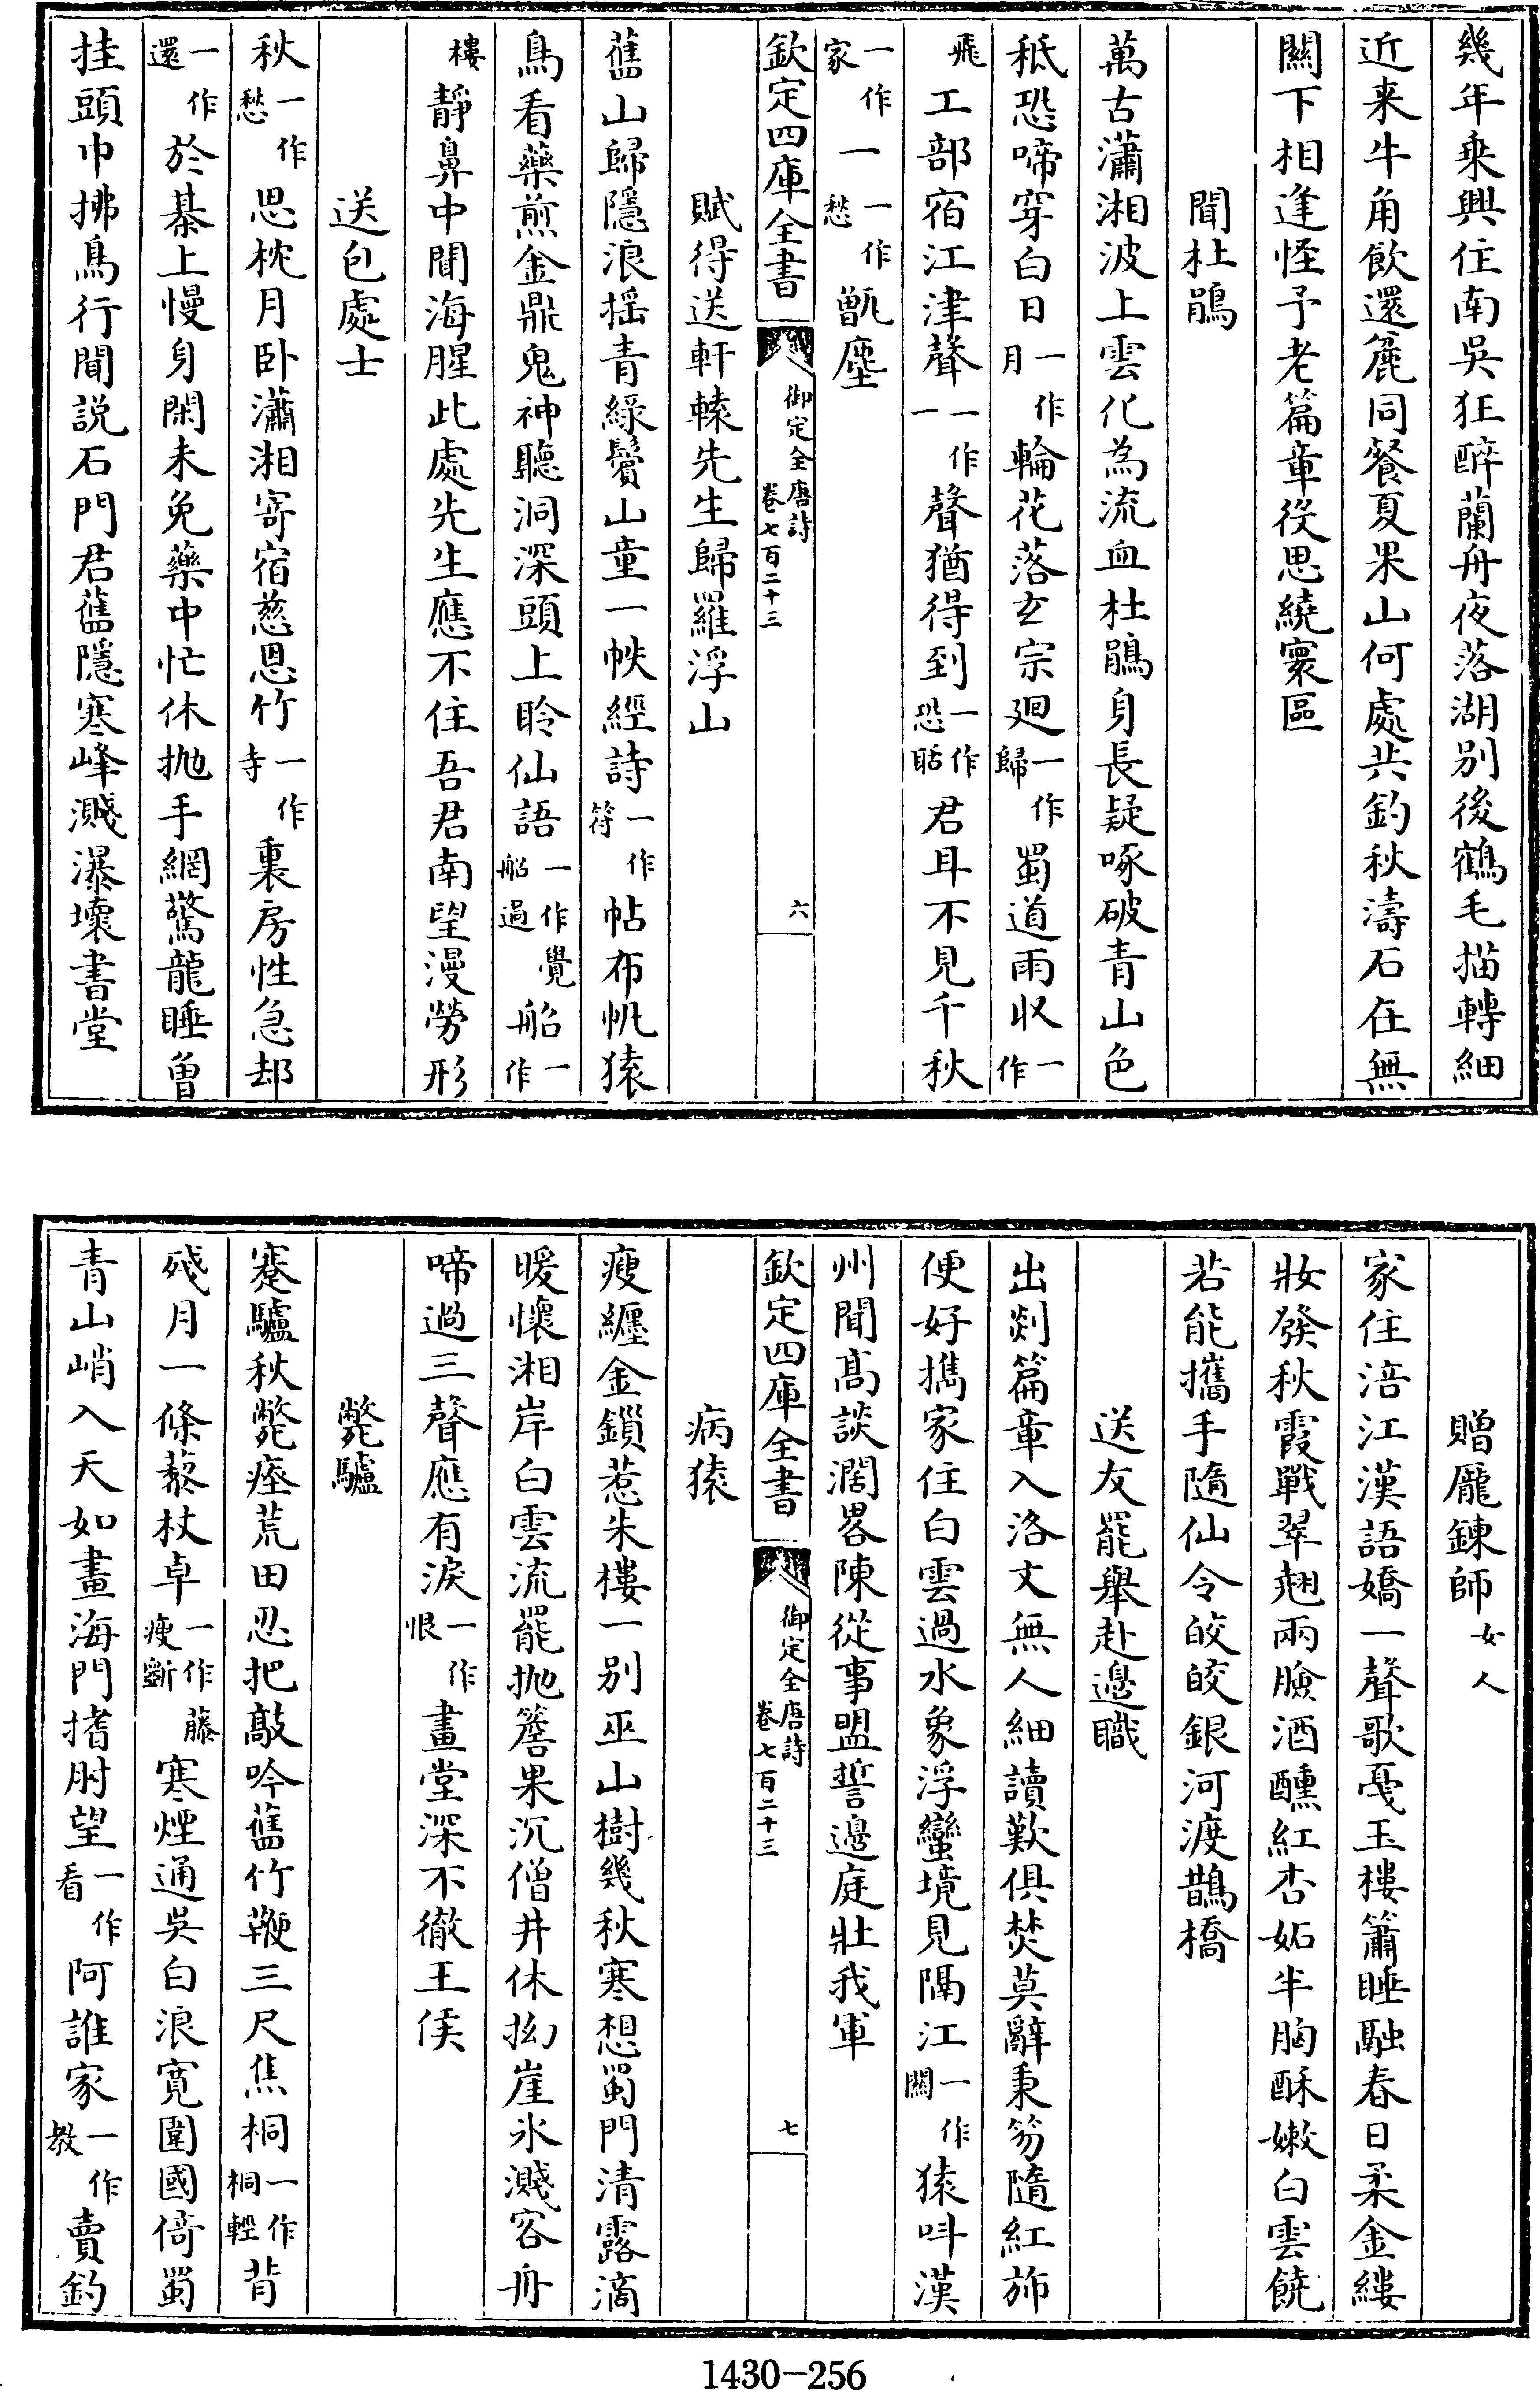 幾年乘興住南吳狂醉蘭舟夜落湖別後鶴毛描轉細
近来牛角飲還麄同餐夏果山何處共釣秋濤石在無
關下相逢怪予老篇章役思繞寰區
聞杜鵑
萬古瀟湘波上雲化為流血杜鵑身長疑啄破青山色
秪恐啼穿白日一作月輪花落玄宗廻一作歸蜀道雨收一作
飛工部宿江津聲一作一聲猶得到一作恐聒君耳不見千秋
一作家一一作愁甑塵
欽定四庫全書 御定全唐詩卷七百二十三 六
賦得送軒轅先生歸羅浮山
舊山歸隱浪搖青綠鬢山童一帙經詩一作符帖布帆猿
鳥看藥煎金鼎鬼神聽洞深頭上聆仙語一作船過覺船一作
樓靜鼻中聞海腥此處先生應不住吾君南望漫勞形
送包處士
秋一作愁思枕月臥瀟湘寄宿慈恩竹一作寺裏房性急却
一作還於棊上慢身閑未免藥中忙休抛手網驚龍睡曾
挂頭巾拂鳥行聞說石門君舊隱寒峰濺瀑壞書堂
贈龐鍊師女人
家住涪江漢語嬌一聲歌戞玉樓簫睡融春日柔金縷
妝發秋霞戰翠翹兩臉酒醺紅杏妬半胸酥嫩白雲饒
若能攜手隨仙令皎皎銀河渡鵲橋
送友罷舉赴邊職
出剡篇章入洛文無人細讀歎俱焚莫辭秉笏隨紅斾
便好攜家住白雲過水象浮蠻境見隔江一作關猿呌漢
州聞高談濶畧陳從事盟誓邊庭壯我軍
欽定四庫全書 御定全唐詩卷七百二十三 七
病猿
瘦纏金鎖惹朱樓一別巫山樹幾秋寒想蜀門清露滴
暖懷湘岸白雲流罷抛簷果沉僧井休拗崖氷濺客舟
啼過三聲應有淚一作恨畫堂深不徹王侯
斃驢
蹇驢秋斃瘞荒田忍把敲吟舊竹鞭三尺焦桐一作桐輕背
殘月一條藜杖卓一作瘦斸藤寒煙通吳白浪寬圍國倚蜀
青山峭入天如畫海門搘肘望一作看阿誰家一作教賣釣
1430-256